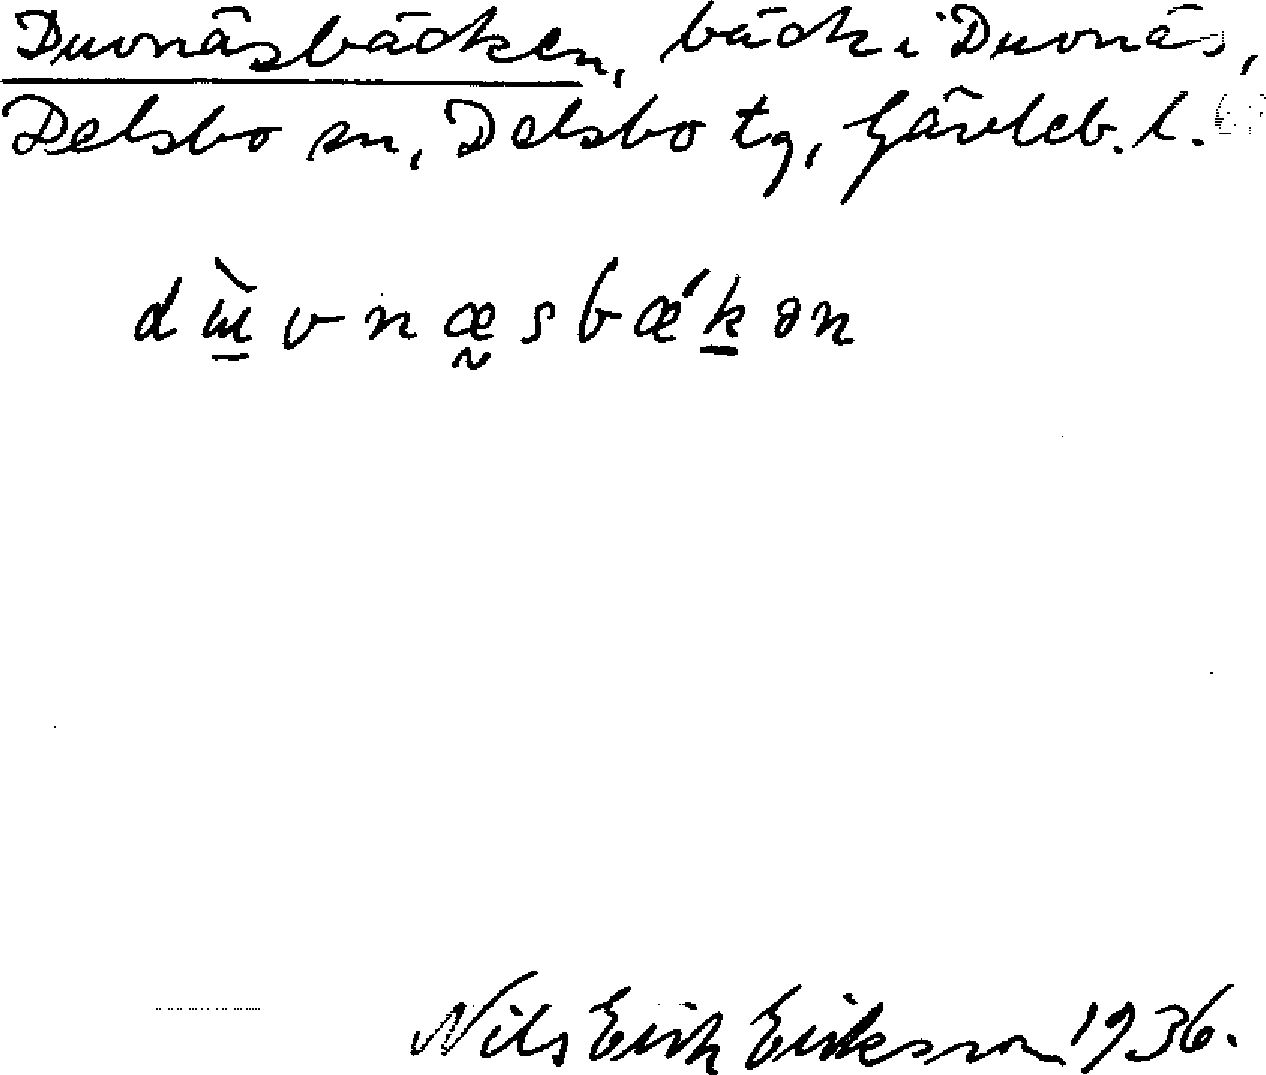 Duvnäsbäcken, bäck i Duvnäs,
Delsbo sn, Delsbo tg, Gävleb. l.
dɯ̀vnæsbǽkən
Nils Erik Eriksson 1936.